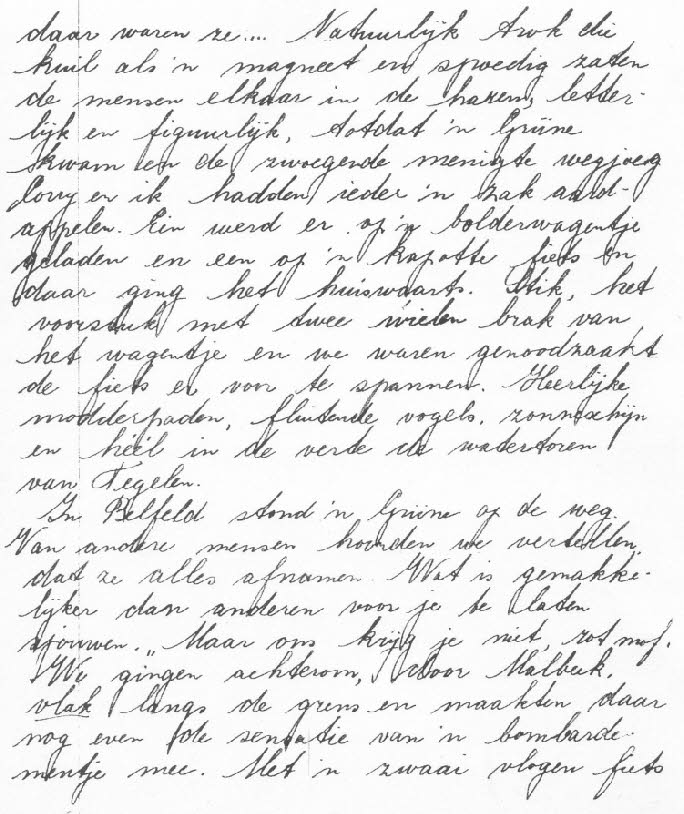 daar waren ze... Natuurlijk trok die
kuil als 'n magneet en spoedig zaten
de mensen elkaar in de haren, letter-
lijk en figuurlijk, totdat 'n Grüne
kwam en de zwoegende menigte wegjoeg
Corry en ik hadden ieder 'n zak aard-
appelen. Ein werd er op 'n bolderwagentje
geladen en een op 'n kapotte fiets en
daar ging het huiswaarts. Stik, het
voorstuk met twee wielen brak van
het wagentje en we waren genoodzaakt
de fiets er voor te spannen. Heerlijke
modderpaden, fluitende vogels, zonneschijn
en héél in de verte de watertoren
van Tegelen.
In Belfeld stond 'n Grüne op de weg.
Van andere mensen hoorden we vertellen,
dat ze alles afnamen. Wat is gemakke-
lijker dan anderen voor je te laten
sjouwen. „Maar ons krijg je niet, rot mof.
We gingen achterom, door Malbeck,
vlak langs de grens en maakten daar
nog even de sensatie van 'n bombarde-
mentje mee. Met 'n zwaai vlogen fiets